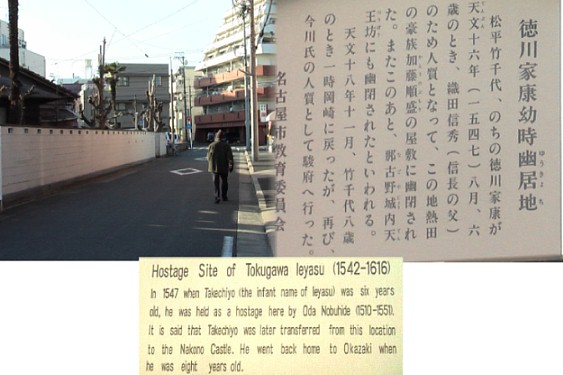 徳川家康幼時幽居地
ゆうきょち
松平竹千代、のちの徳川家康が
天文十六年（一五四七）八月、六
歳のとき、織田信秀（信長の父）
のため人質となって、この地熱田
の豪族加藤順盛の屋敷に幽閉され
た。またこのあと、那古野城内天
王坊にも幽閉されたといわれる。
天文十八年十一月、竹千代八歳
のとき一時岡崎に戻ったが、再び、
今川氏の人質として駿府へ行った。
名古屋市教育委員会
Hostage Site of Tokugawa Ieyasu (1542-1616)
In 1547 when Takechiyo (the infant name of Ieyasu) was six years
old, he was held as a hostage here by Oda Nobuhide (1510-1551).
It is said that Takechiyo was later transferred from this location
to the Nakono Castle. He went back home to Okazaki when
he was eight years old.